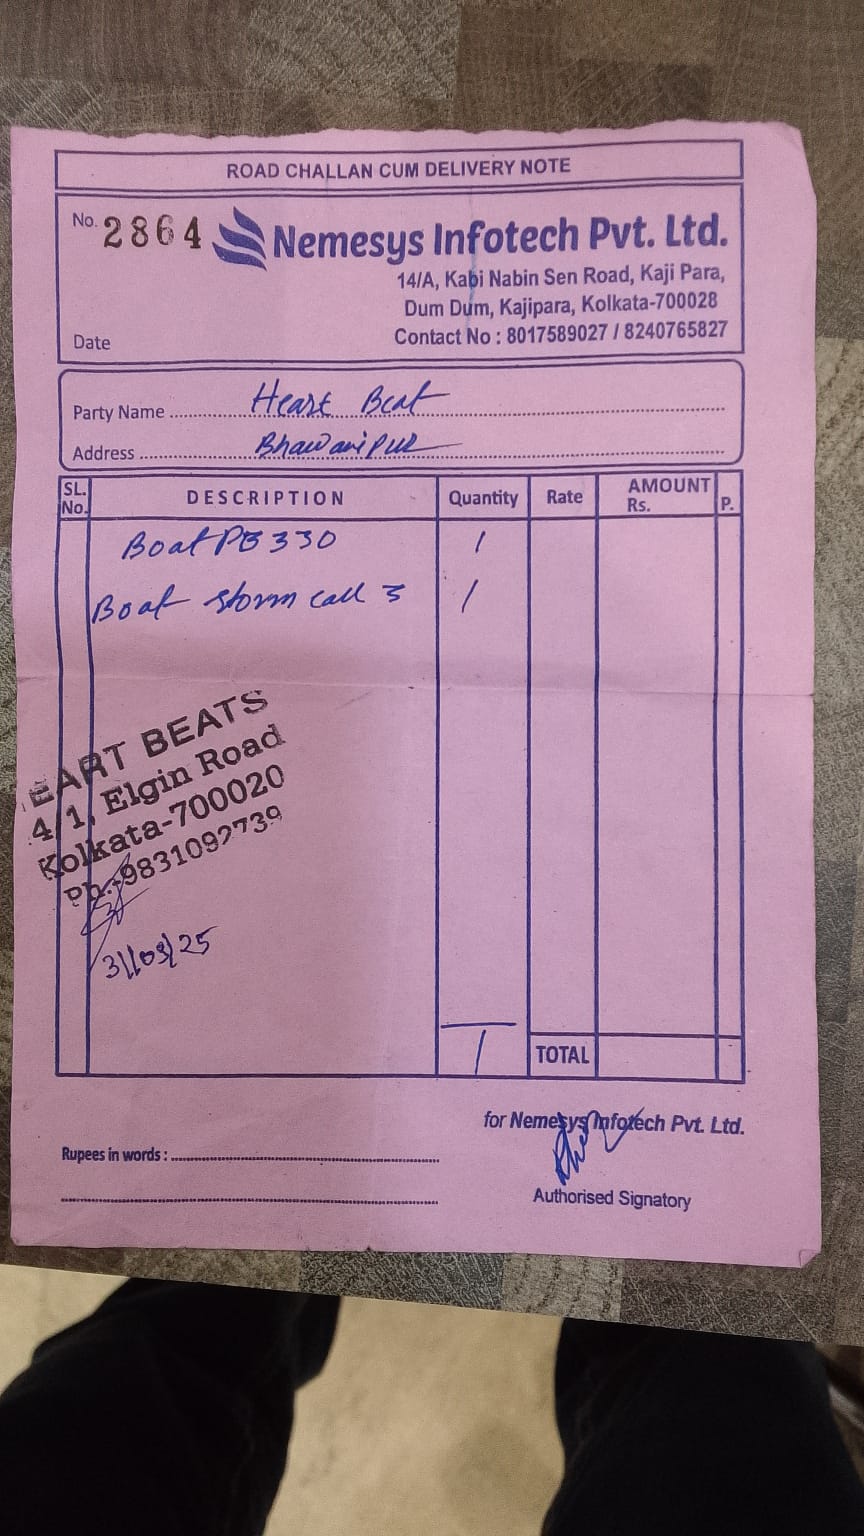 ROAD CHALLAN CUM DELIVERY NOTE
No. 2864
Nemesys Infotech Pvt. Ltd.
14/A, Kabi Nabin Sen Road, Kaji Para,
Dum Dum, Kajipara, Kolkata-700028
Date
Contact No : 8017589027 / 8240765827
Party Name Heart Beat
Address Bhawanipur
SL. No. DESCRIPTION Quantity Rate AMOUNT Rs. P.
Boat PB 330 1
Boat storm call 3 1
HEART BEATS
4/1, Elgin Road
Kolkata-700020
Ph.-9831092739
31/03/25
1 TOTAL
for Nemesys Infotech Pvt. Ltd.
Rupees in words :
Authorised Signatory